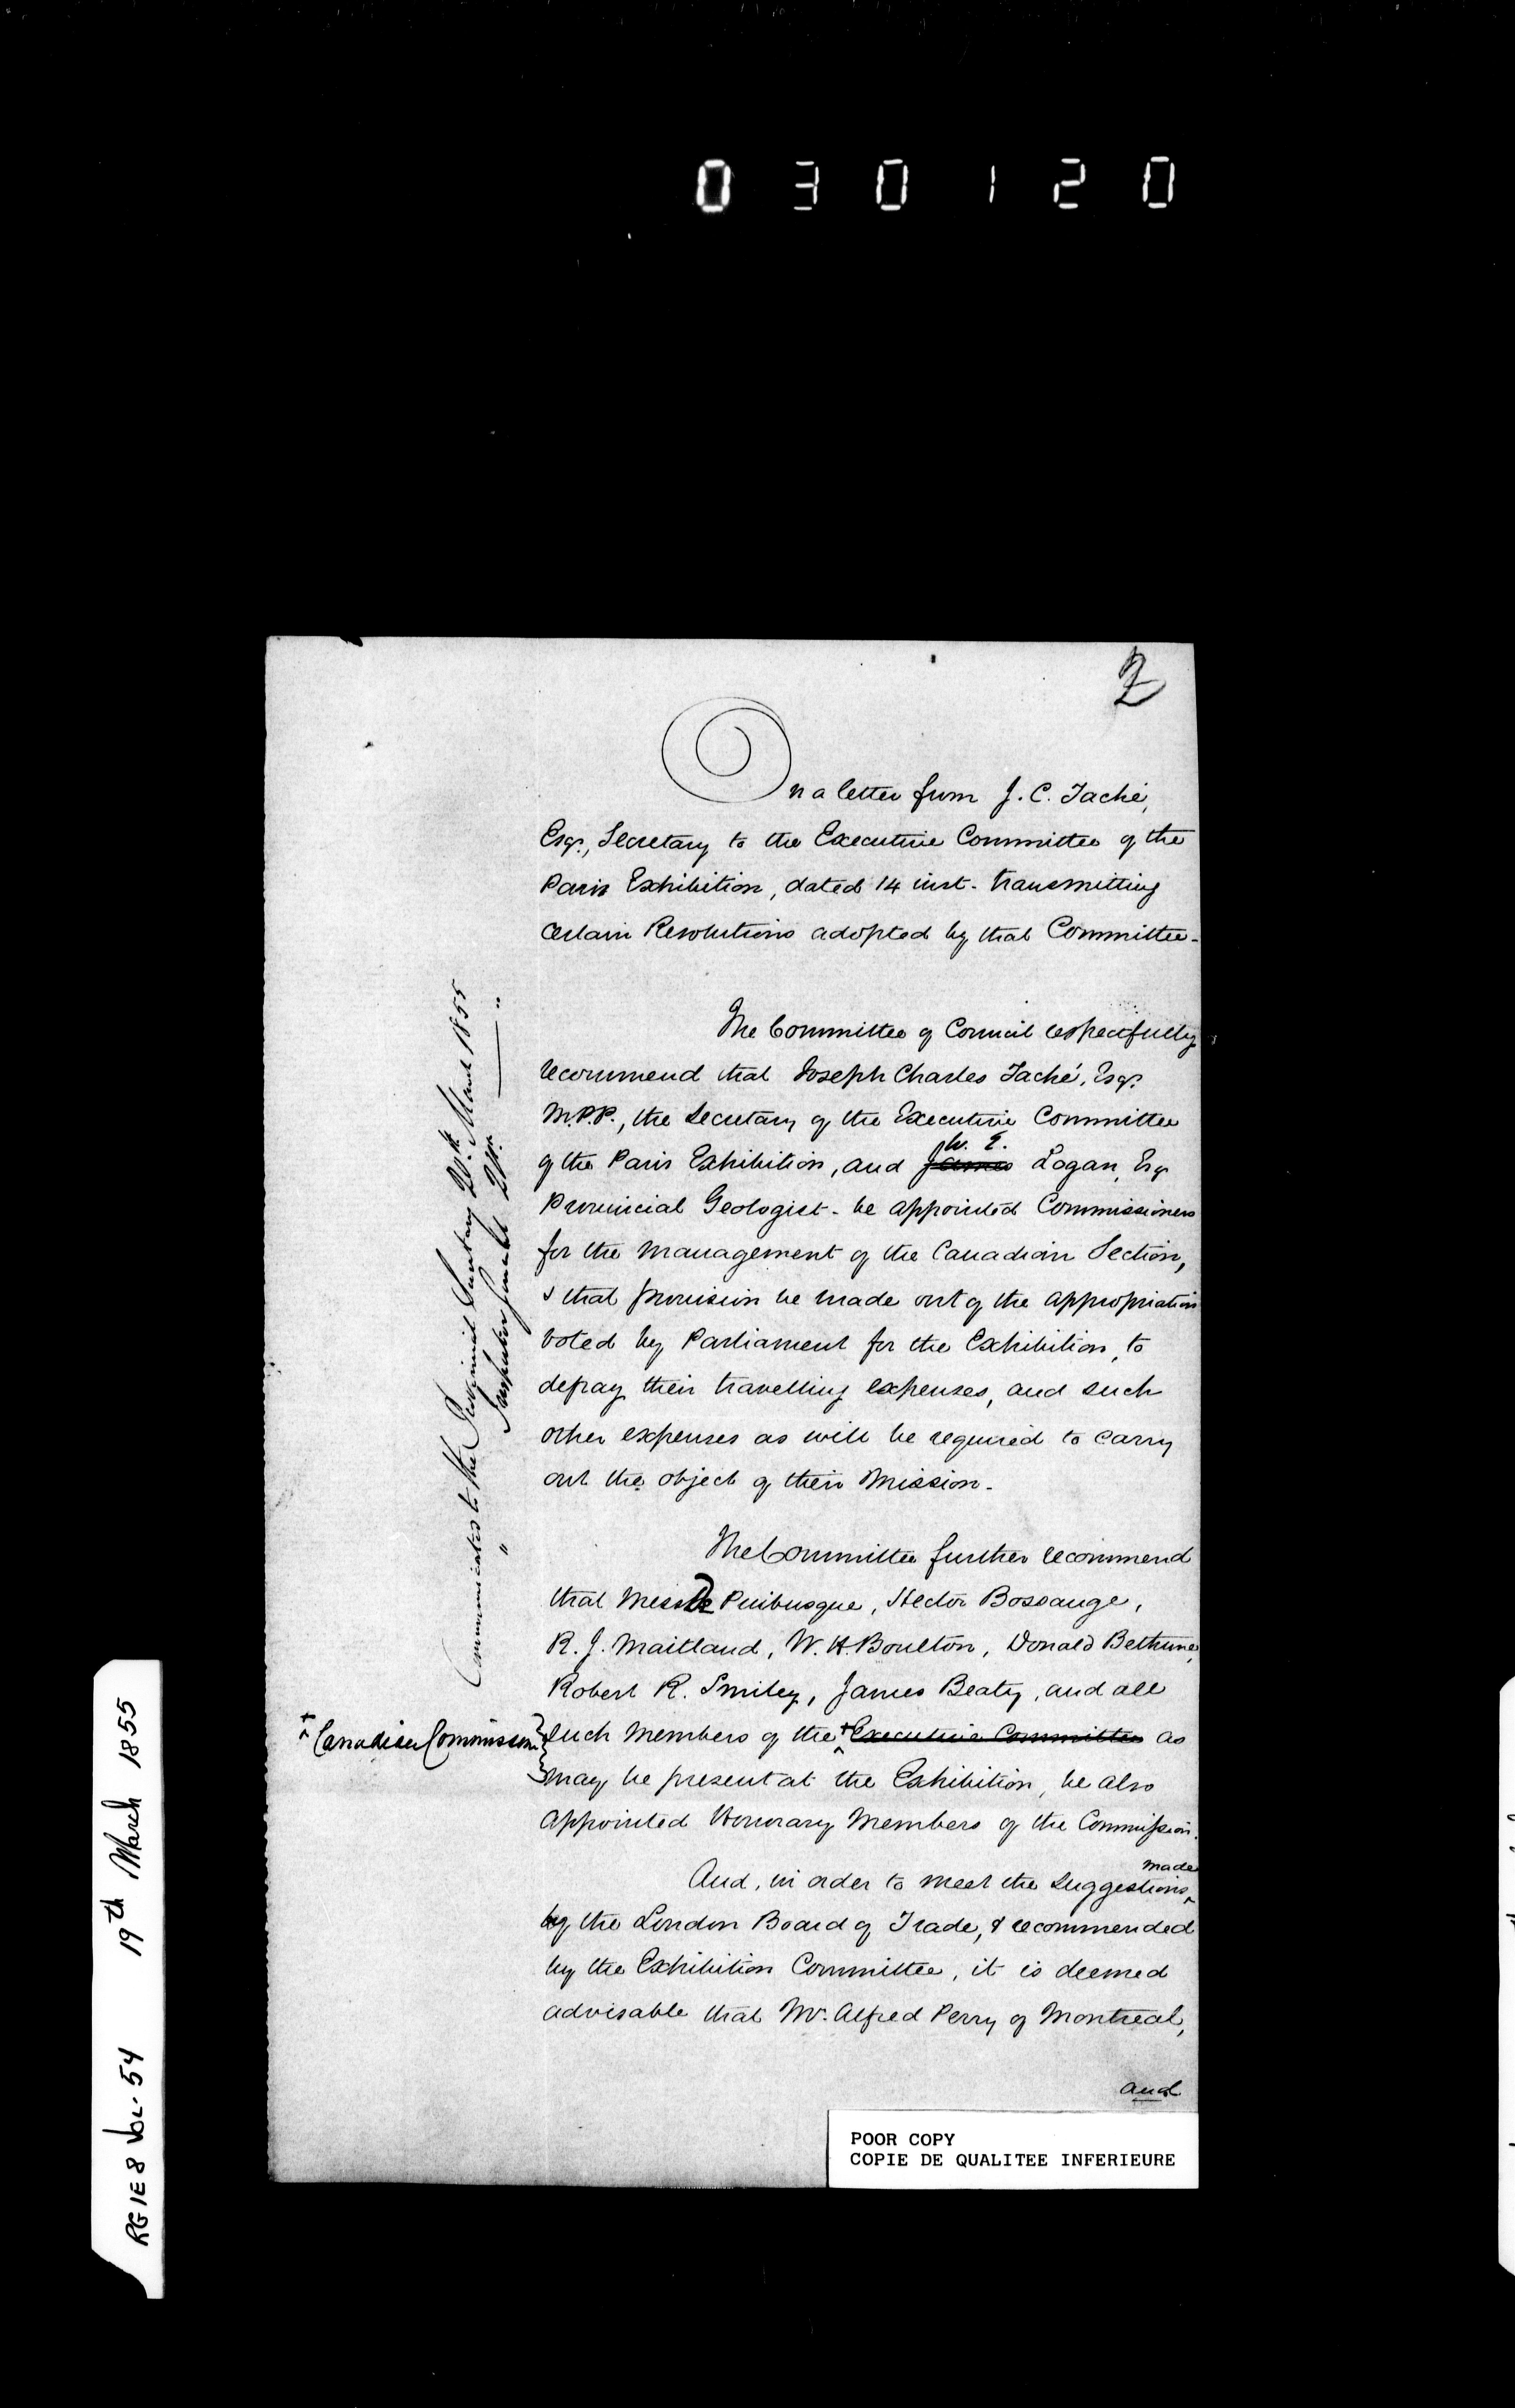 030120
2
On a letter from J. C. Taché,
Esqr., Secretary to the Executive Committee of the
Paris Exhibition, dated 14 inst. transmitting
certain Resolutions adopted by that Committee-
The Committee of Council respectfully
recommend that Joseph Charles Taché, Esqr.
M.P.P., the Secretary of the Executive Committee
W. E.
of the Paris Exhibition, and James Logan, Esqr
Provincial Geologist - be appointed Commissioners
for the management of the Canadian Section,
& that provision be made out of the appropriation
voted by Parliament for the Exhibition, to
defray their travelling expenses, and such
other expenses as will be required to carry
out the object of their Mission.
The Committee further recommend
that Messrs De Puibusque, Hector Bossange,
R. J. Maitland, W. H. Boulton, Donald Bethune,
Robert R. Smiley, James Beaty, and all
such Members of the + Executive Committee as
+ Canadian Commission
may be present at the Exhibition, be also
appointed Honorary Members of the Commission.
made
And, in order to meet the suggestions
by the London Board of Trade, & recommended
by the Exhibition Committee, it is deemed
advisable that Mr. Alfred Perry of Montreal,
and
Communicated to the Provincial Secretary 20th March 1855
" Inspector General 21st "
RG 1 E 8 Vol. 54 19th March 1855
POOR COPY
COPIE DE QUALITEE INFERIEURE